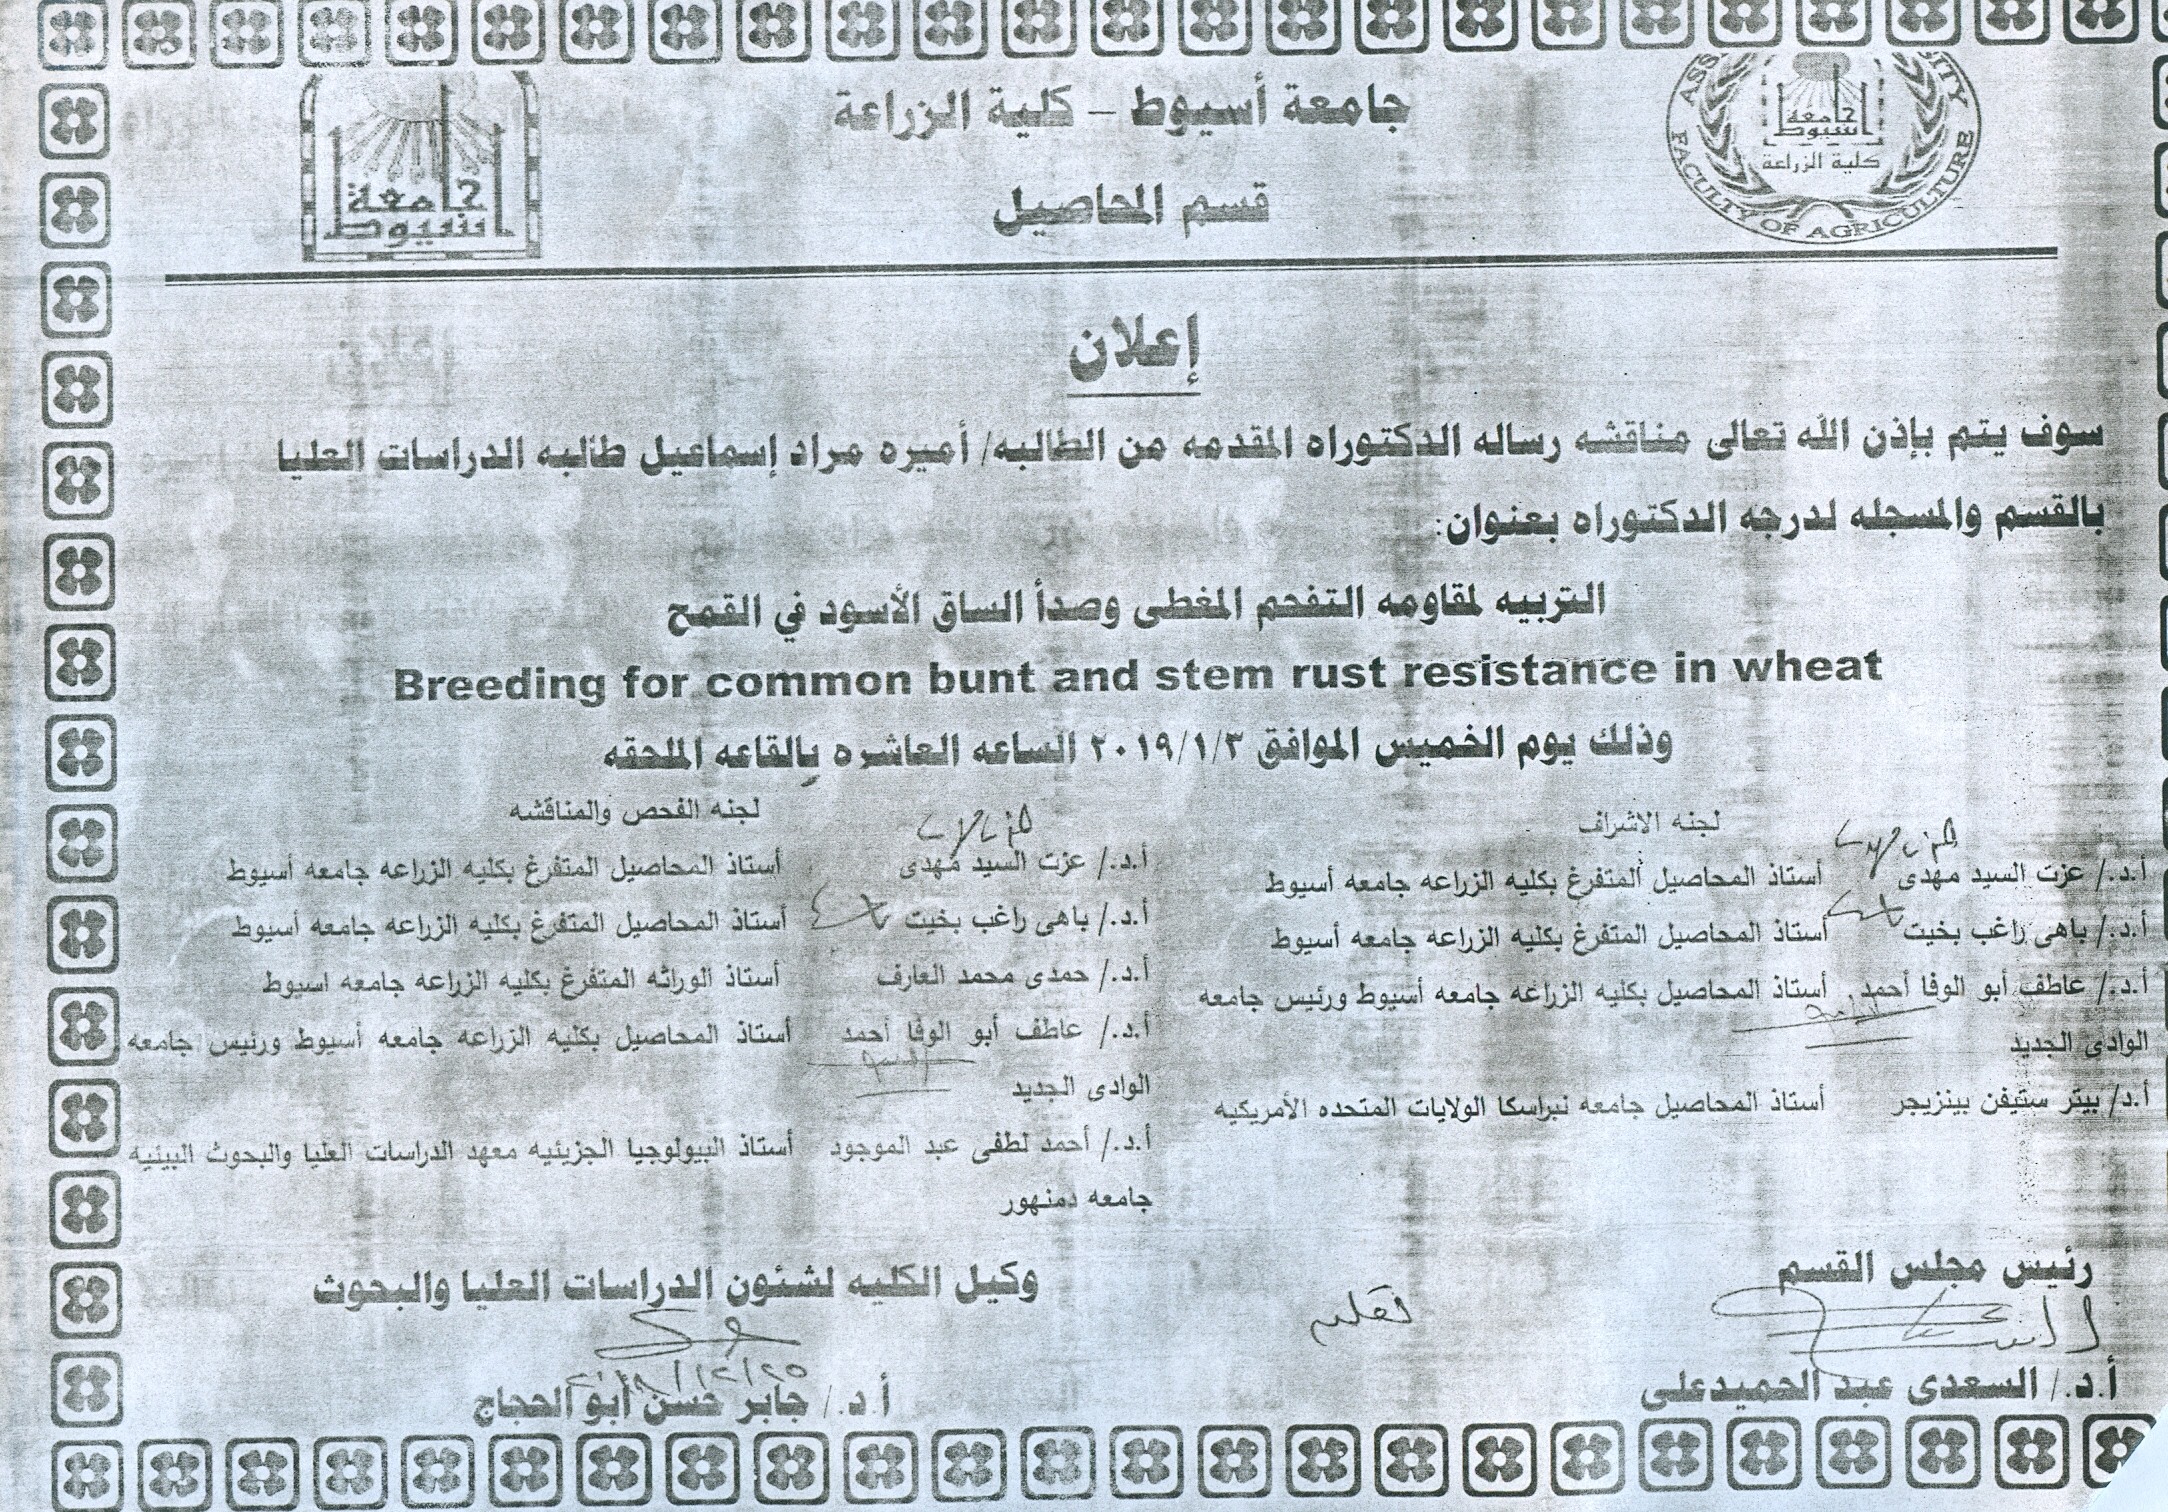 جامعة أسيوط – كلية الزراعة
قسم المحاصيل
جامعة
اسيوط
ASS
SITY
FACULTY OF AGRICULTURE
جامعة
اسيوط
كلية الزراعة
إعلان
سوف يتم بإذن الله تعالى مناقشه رساله الدكتوراه المقدمه من الطالبه/ أميره مراد إسماعيل طالبه الدراسات العليا
بالقسم والمسجله لدرجه الدكتوراه بعنوان:
التربيه لمقاومه التفحم المغطى وصدأ الساق الأسود في القمح
Breeding for common bunt and stem rust resistance in wheat
وذلك يوم الخميس الموافق ٢٠١٩/١/٣ الساعه العاشره بالقاعه الملحقه
لجنه الاشراف
أ.د./ عزت السيد مهدى أستاذ المحاصيل المتفرغ بكليه الزراعه جامعه أسيوط
أ.د./ باهى راغب بخيت أستاذ المحاصيل المتفرغ بكليه الزراعه جامعه أسيوط
أ.د./ عاطف أبو الوفا أحمد أستاذ المحاصيل بكليه الزراعه جامعه أسيوط ورئيس جامعه
الوادى الجديد
أ.د/ بيتر ستيفن بينزيجر أستاذ المحاصيل جامعه نبراسكا الولايات المتحده الأمريكيه
لجنه الفحص والمناقشه
أ.د./ عزت السيد مهدى أستاذ المحاصيل المتفرغ بكليه الزراعه جامعه أسيوط
أ.د./ باهى راغب بخيت أستاذ المحاصيل المتفرغ بكليه الزراعه جامعه أسيوط
أ.د./ حمدى محمد العارف أستاذ الوراثه المتفرغ بكليه الزراعه جامعه اسيوط
أ.د./ عاطف أبو الوفا أحمد أستاذ المحاصيل بكليه الزراعه جامعه أسيوط ورئيس جامعه
الوادى الجديد
أ.د./ أحمد لطفى عبد الموجود أستاذ البيولوجيا الجزيئيه معهد الدراسات العليا والبحوث البيئيه
جامعه دمنهور
رئيس مجلس القسم
أ.د./ السعدى عبد الحميدعلى
وكيل الكليه لشئون الدراسات العليا والبحوث
أ.د./ جابر حسن أبو الحجاج